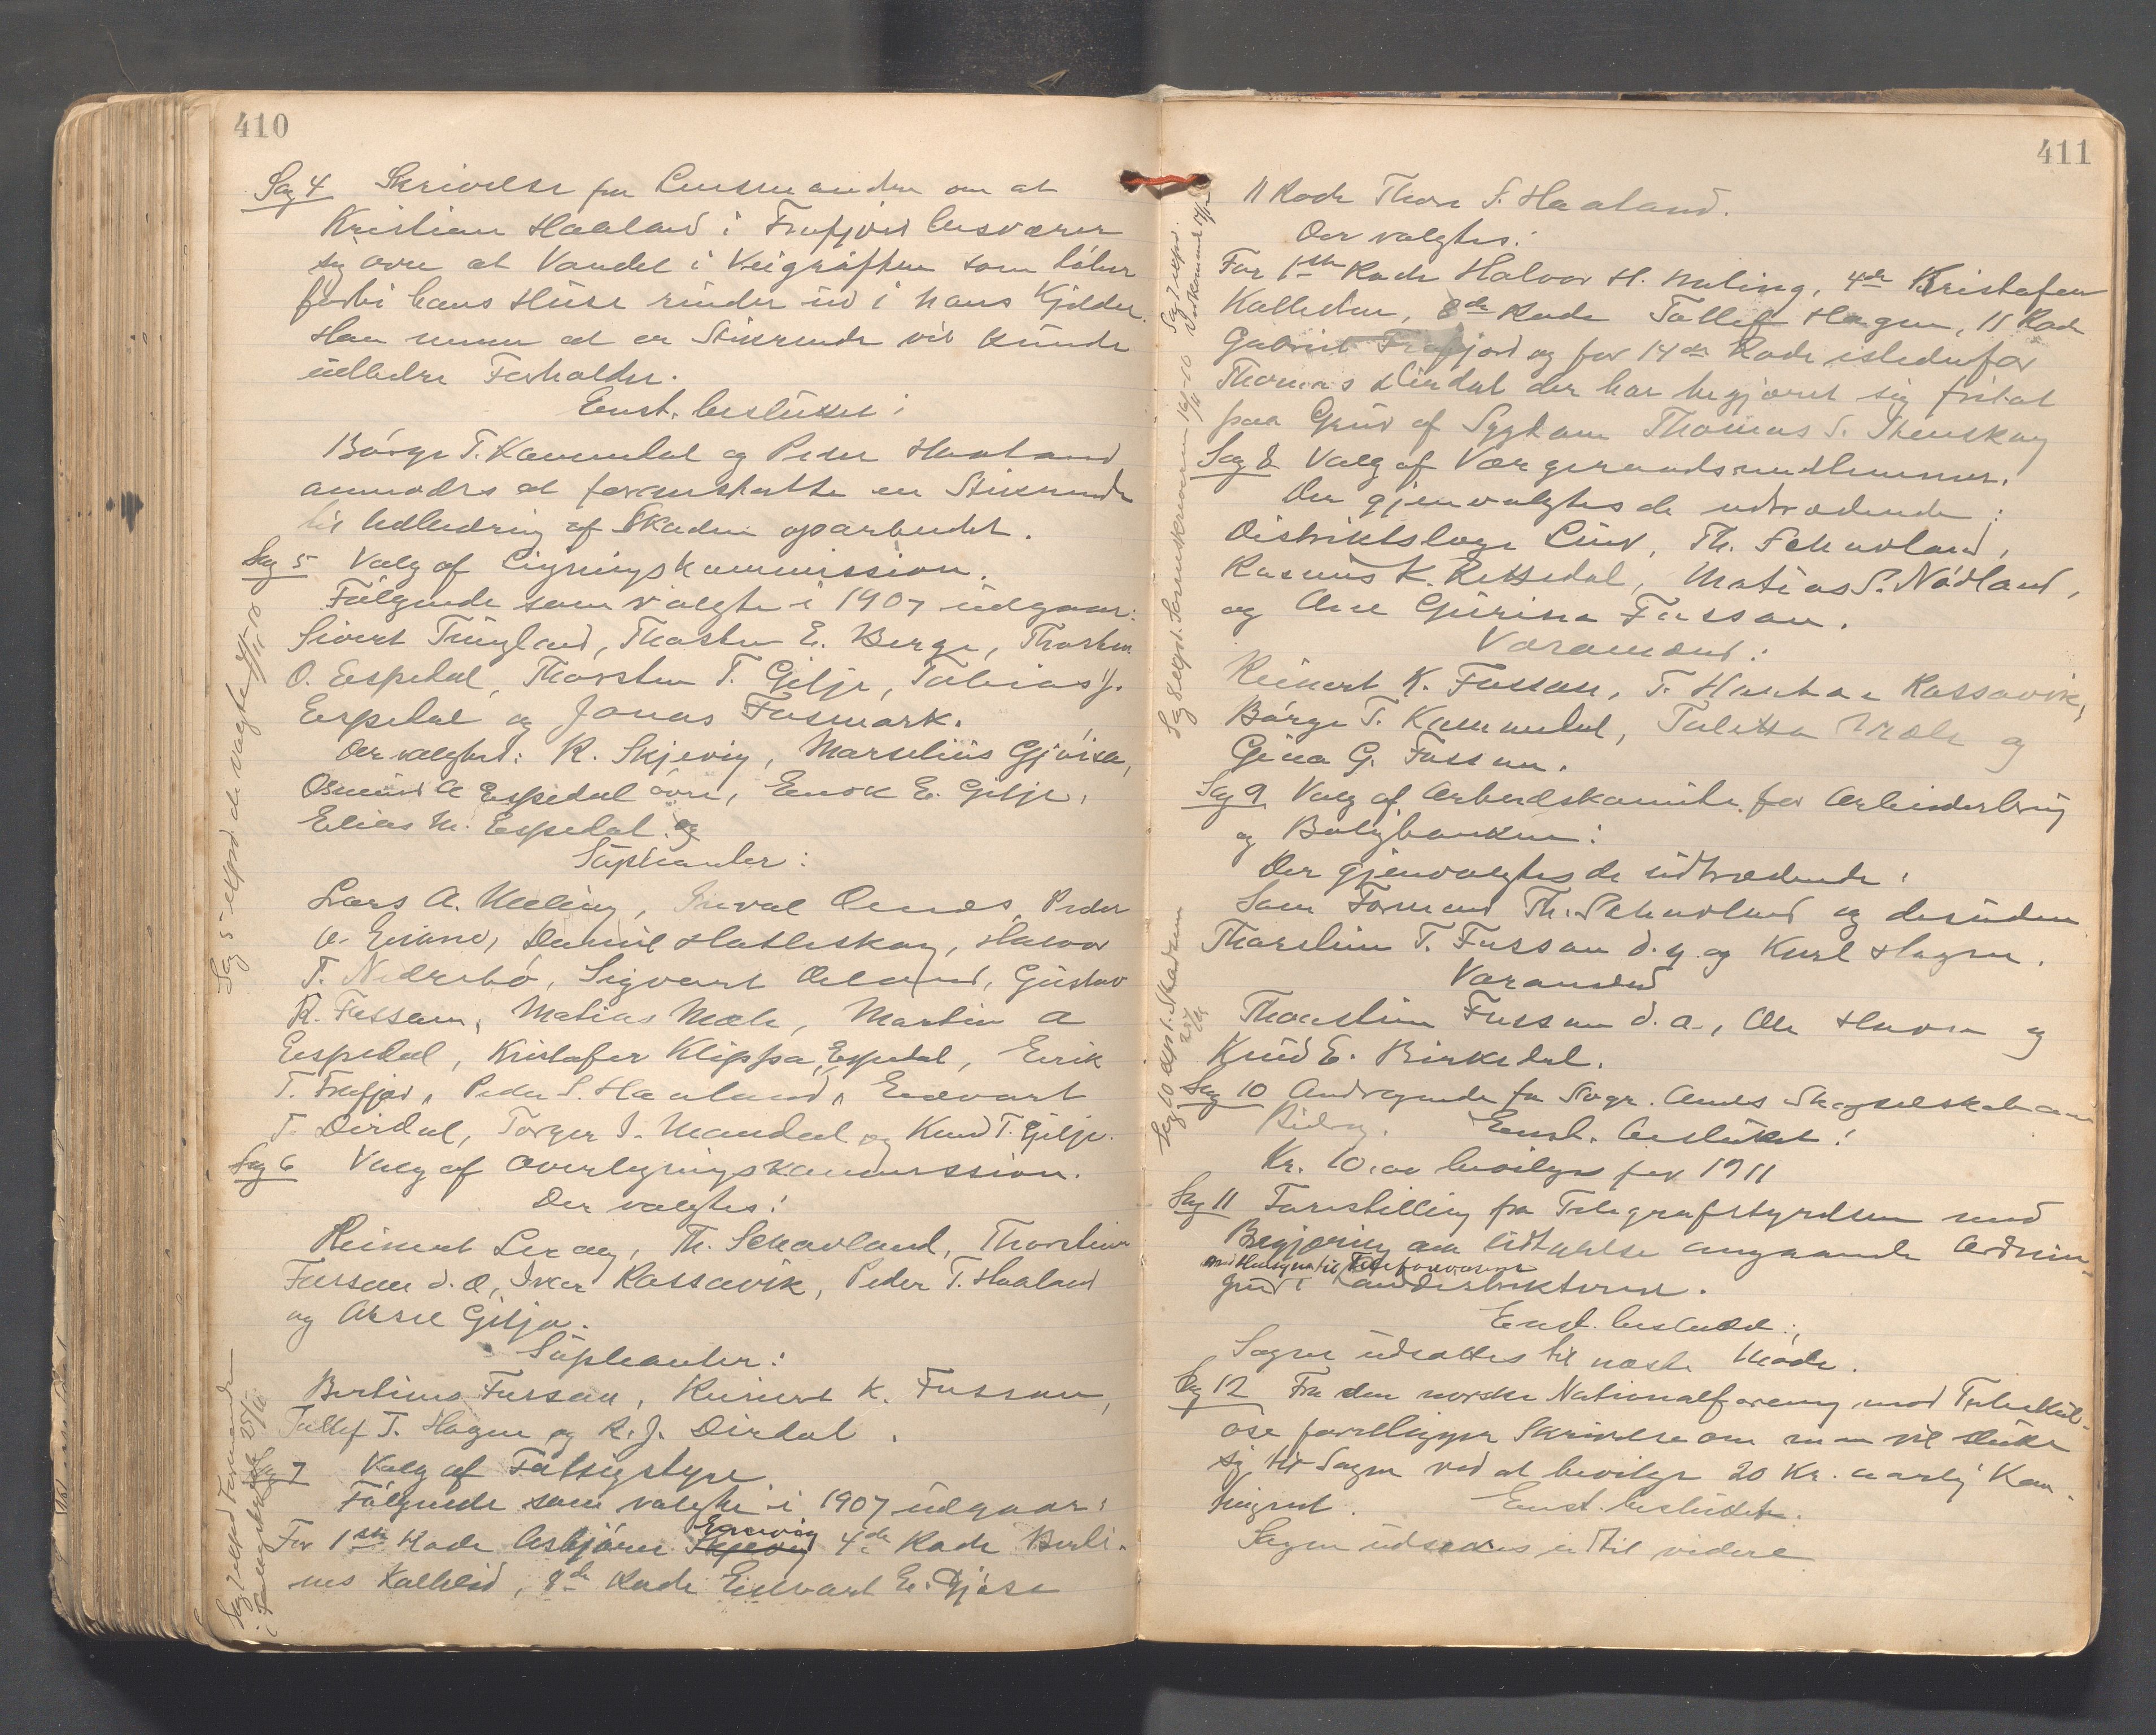 410
Sag 4 Skrivelse fra Lensmanden om at
Kristian Haaland i Frafjord besværer
sig over at Vandet i Veigrøften som løber
forbi hans Huse rinder ind i hans Kjelder.
Han mener at en Stikrende vil kunde
udbedre Forholdet.
Enst. besluttet:
Børge T. Kommedal og Peder Haaland
anmodes at foranstalte en Stikrende
til Udbedring af Skaden oparbeidet.
Sag 5 Valg af Ligningskommission.
Følgende som valgte i 1907 udgaar:
Sivert Tungland, Thorsten E. Berge, Thorsten
O. Espedal, Thorsten T. Gilje, Tobias J.
Espedal og Jonas Fosmark.
Der valgtes: R. Skjevig, Marselius Gjøise,
Osmund A Espedal øvre, Enok E. Gilje,
Elias M. Espedal og
Supleanter:
Lars A. Meling, Oenes, Peder
A. Eiane, Daniel Hatleskog, Halvor
T. Nedrebø, Sigvart Øeland, Gustav
R. Fossan, Matias Mæle, Martin A
Espedal, Kristofer Klippa Espedal, Eirik
T. Frafjord, Peder S. Haaland, Enevart
T. Dirdal, Torger I. Maudal og Knud T. Gilje.
Sag 6 Valg af Overligningskommission.
Der valgtes:
Reinert Leraag, Th. Schavland, Thorstein
Fossan d.æ, Iver Rossavik, Peder T. Haaland
og Aksel Gilja.
Supleanter:
Bertinus Fossan, Reinert K. Fossan,
Tollef T. Hagen og R. J. Dirdal.
Sag 7 Valg af Fattigstyre
Følgende som valgte i 1907 udgaar:
For 1ste Kode Asbjørn Skjevig Ernevig 4de Kode Berti-
nus Kalleid, 8de Kode Enevart E. Gjøse
Sag 5 exped. de valgte 8/11 10
411
11 Kode Thore S. Haaland.
Der valgtes:
For 1ste Kode Halvor H. Meling, 4de Kristofer
Kalleden, 8de Kode Tollef Hagen, 11 Kode
Gabriel Frafjord og for 14de Kode istedenfor
Thomas Dirdal der har begjæret sig fritat
paa Grund af Sygdom Thomas S. Stenskog
Sag 8 Valg af Vergeraadsmedlemmer.
Der gjenvalgtes de udtrædende:
Distriktslæge Lind, Th. Schavland,
Rasmus K. Rettedal, Matias S. Nødland,
og Ane Gurina Fossan.
Varamænd:
Reinert K. Fossan, T. Rossavik,
Børge T. Kommedal, Taletta Mæle og
Gina G. Fossan.
Sag 9 Valg af Arbeidskomite for Arbeiderbrug
og Boligbanken:
Der gjenvalgtes de udtrædende:
Som Formand Th. Schavland og desuden
Thorstein T. Fossan d.y. og Karl Hagen.
Varamænd
Thorstein Fossan d.æ., Ole Havn og
Knud E. Birkedal.
Sag 10 Andragende fra Stvgr. Amts Skogselskab om
Bidrag. Enst. besluttet:
Kr. 10.00 bevilges for 1911
Sag 11 Forestilling fra Telegrafstyrelsen med
Begjæring om Udtalelse angaaende Ordnin-
med Hensyn til Telefonvæsenet
gen i Landdistrikterne.
Enst. besluttet:
Sagen udsættes til næste Møde.
Sag 12 Fra den norske Nationalforening mod Tuberkul-
ose foreligger Skrivelse om man vil slutte
sig til Sagen ved at bevilge 20 Kr. aarlig Kon-
tingent. Enst. besluttet:
Sagen udsættes indtil videre